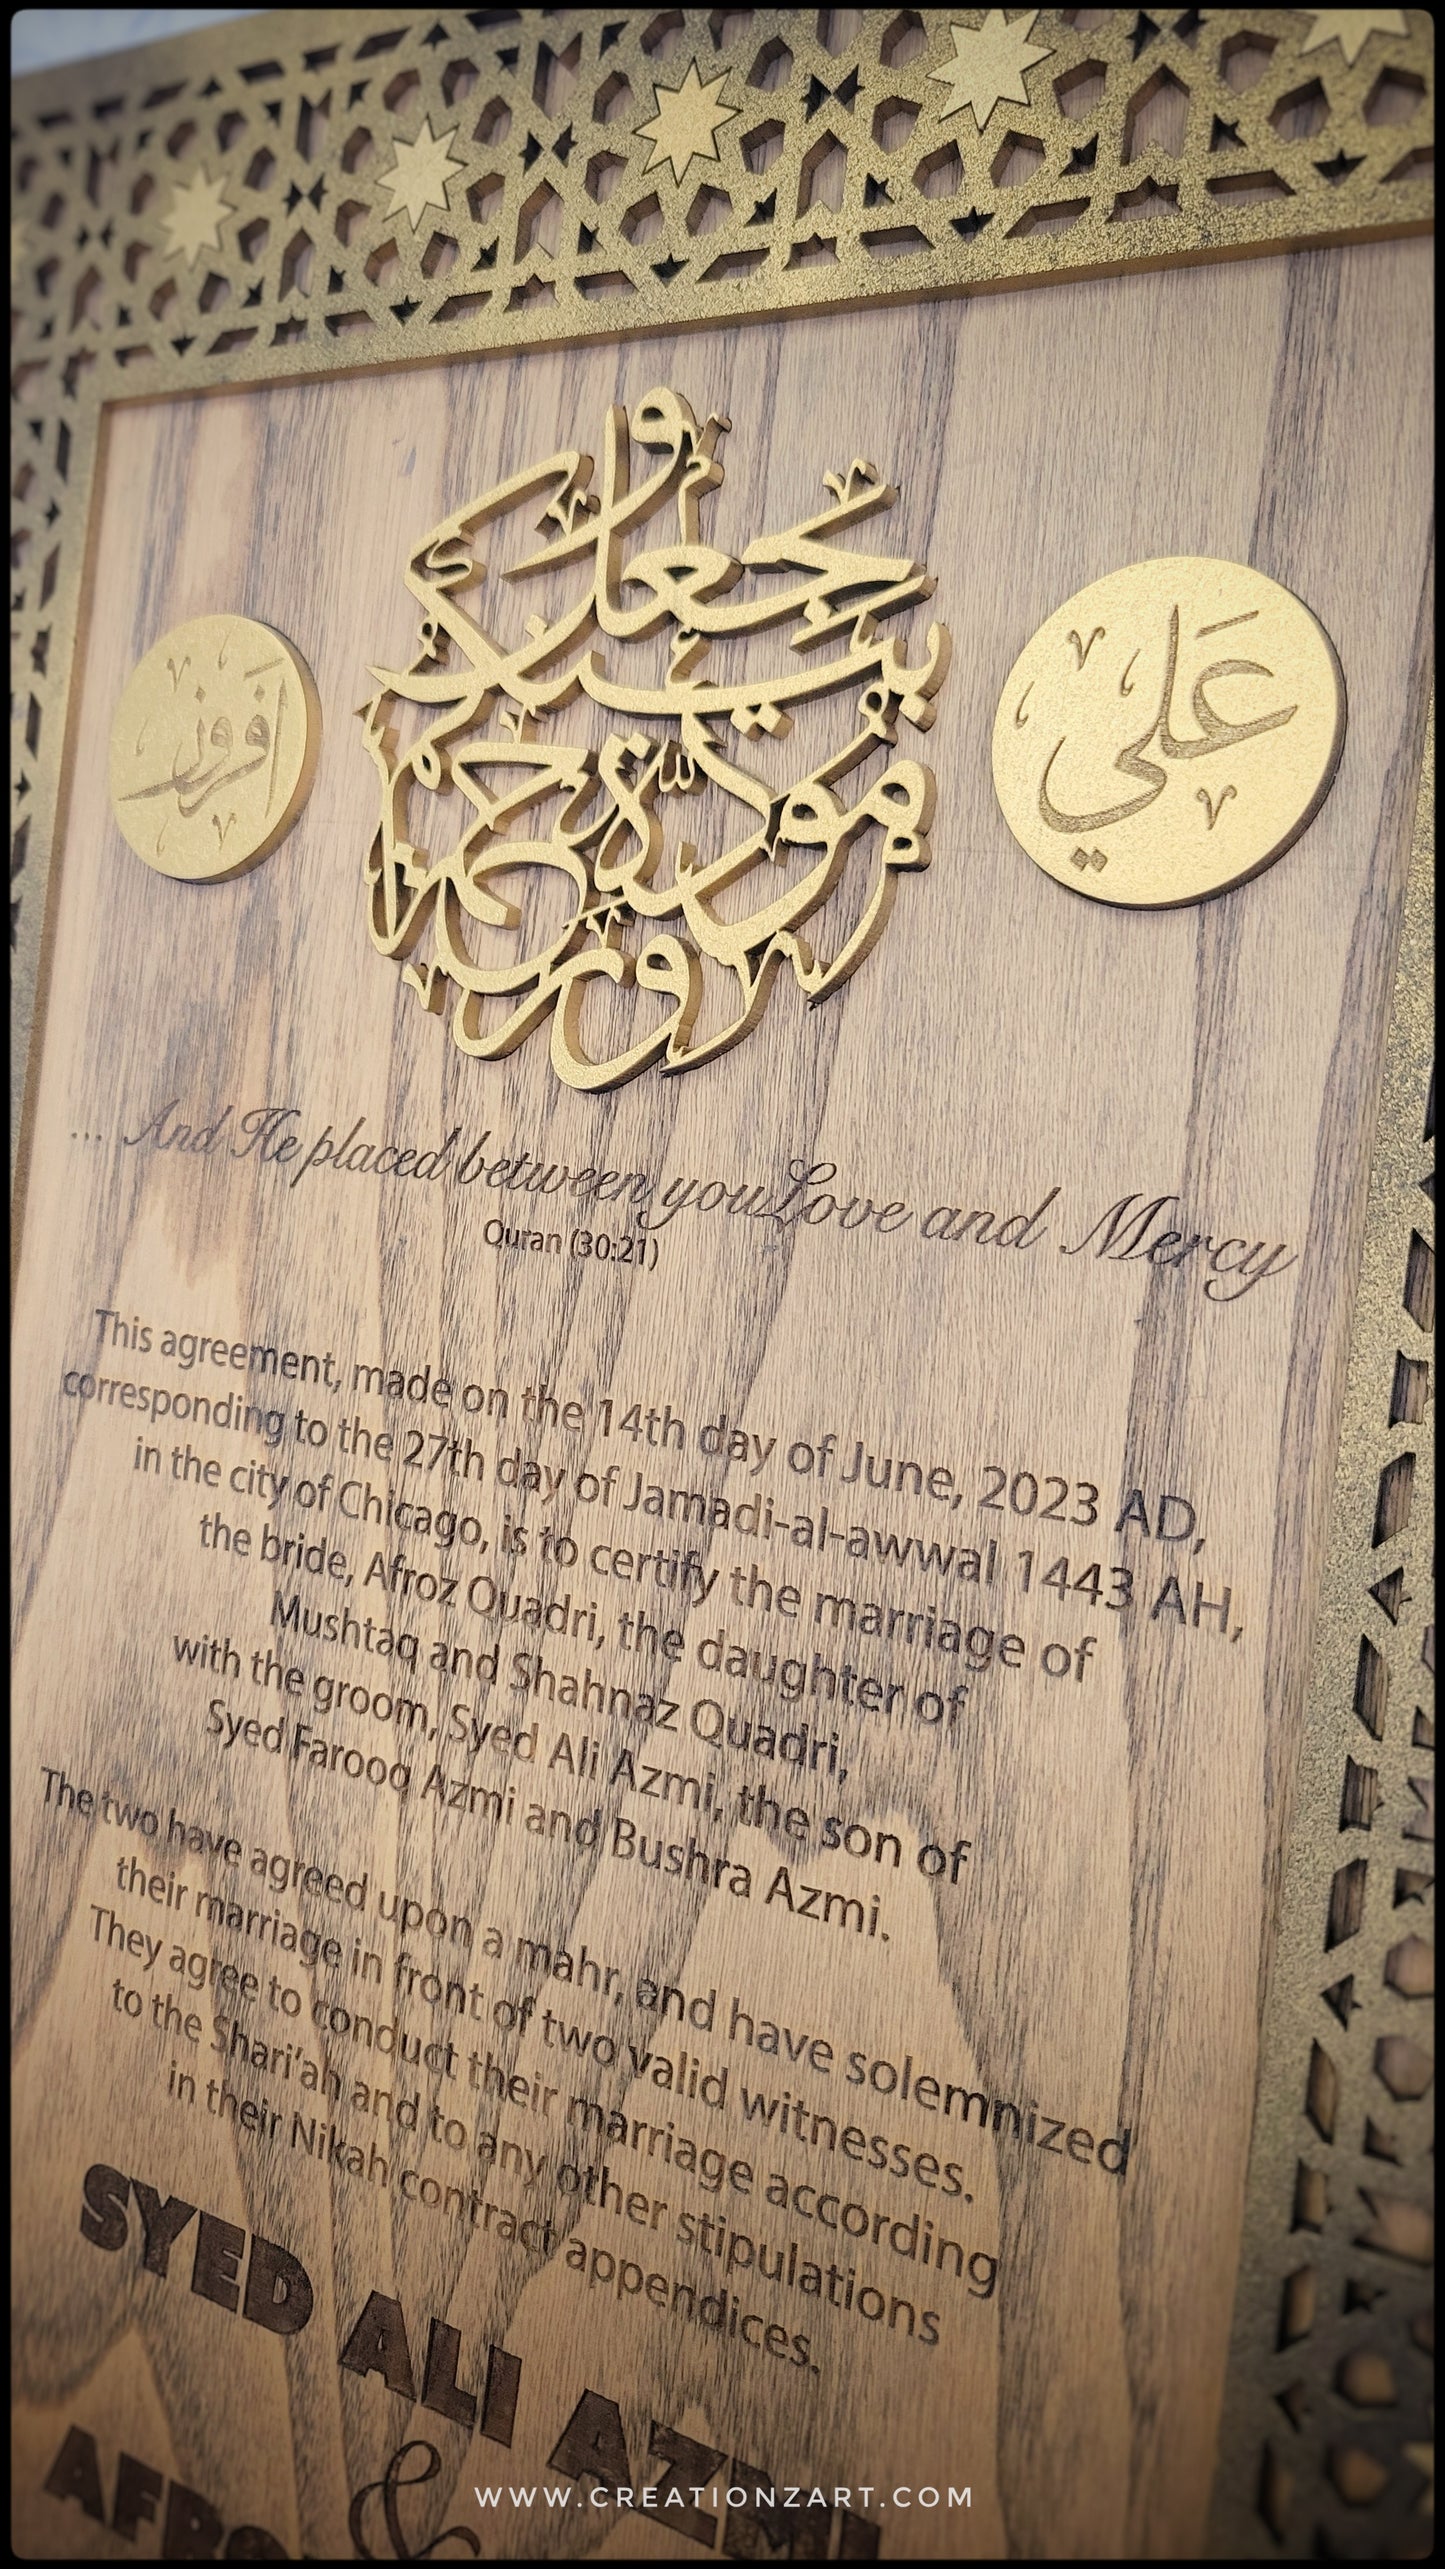 وجعل بينكم مودة ورحمة
افروز
علي
... And He placed between you Love and Mercy
Quran (30:21)
This agreement, made on the 14th day of June, 2023 AD,
corresponding to the 27th day of Jamadi-al-awwal 1443 AH,
in the city of Chicago, is to certify the marriage of
the bride, Afroz Quadri, the daughter of
Mushtaq and Shahnaz Quadri,
with the groom, Syed Ali Azmi, the son of
Syed Farooq Azmi and Bushra Azmi.
The two have agreed upon a mahr, and have solemnized
their marriage in front of two valid witnesses.
They agree to conduct their marriage according
to the Shari'ah and to any other stipulations
in their Nikah contract appendices.
SYED ALI AZMI
&
WWW.CREATIONZART.COM